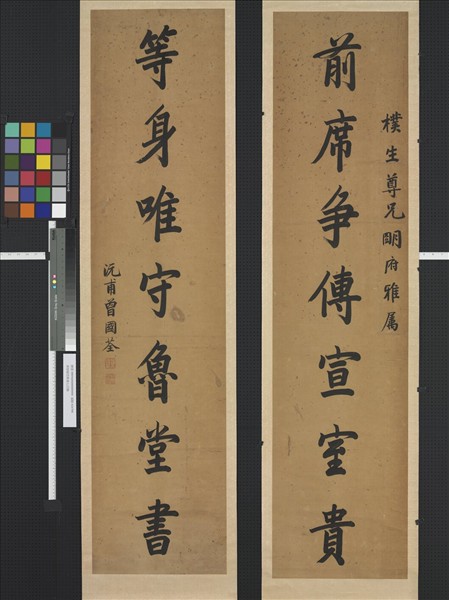 樸生尊兄明府雅屬
前席爭傳宣室貴
等身唯守魯堂書
沅甫曾國荃